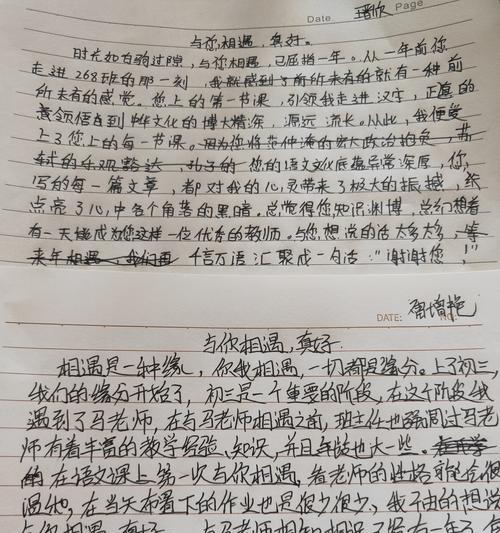 Date Page
与你相遇,真好。
时光如白驹过隙,与你相遇,已屈指一年。从一年前你
走进268班的那一刻,我就感到了前所未有的就有一种前
所未有的感觉。您上的第一节课,引领我走进汉字,正意的
领悟到中华文化的博大精深,源远流长。从此,我便爱
上了您上的每一节课。因为您将范仲淹的宏大政治抱负,苏
轼的乐观豁达,孔子的 您的语文文化底蕴异常深厚,你
写的每一篇文章,都对我的心灵带来了极大的振撼,
点亮了心中各个角落的黑暗。总觉得您知识渊博,总幻想着
有一天能成为您这样一位优秀的教师。与您想说的话太多太多,等
来年相遇,我们再 千言万语汇聚成一句话:"谢谢您!"
DATE:
与你相遇,真好
相遇是一种缘,你我相遇,一切都是缘分。上了初三,
我们的缘分开始了,初三是一个重要的阶段,在这个阶段我
遇到了马老师,在与马老师相遇之前,班主任也强调过马老
师有着丰富的教学经验、知识,并且年龄也大一些。
在语文课上第一次与你相遇,看老师的性格就会很
温和,在当天布置下的作业也是很少很少,我不由的想说
与你相遇,真好